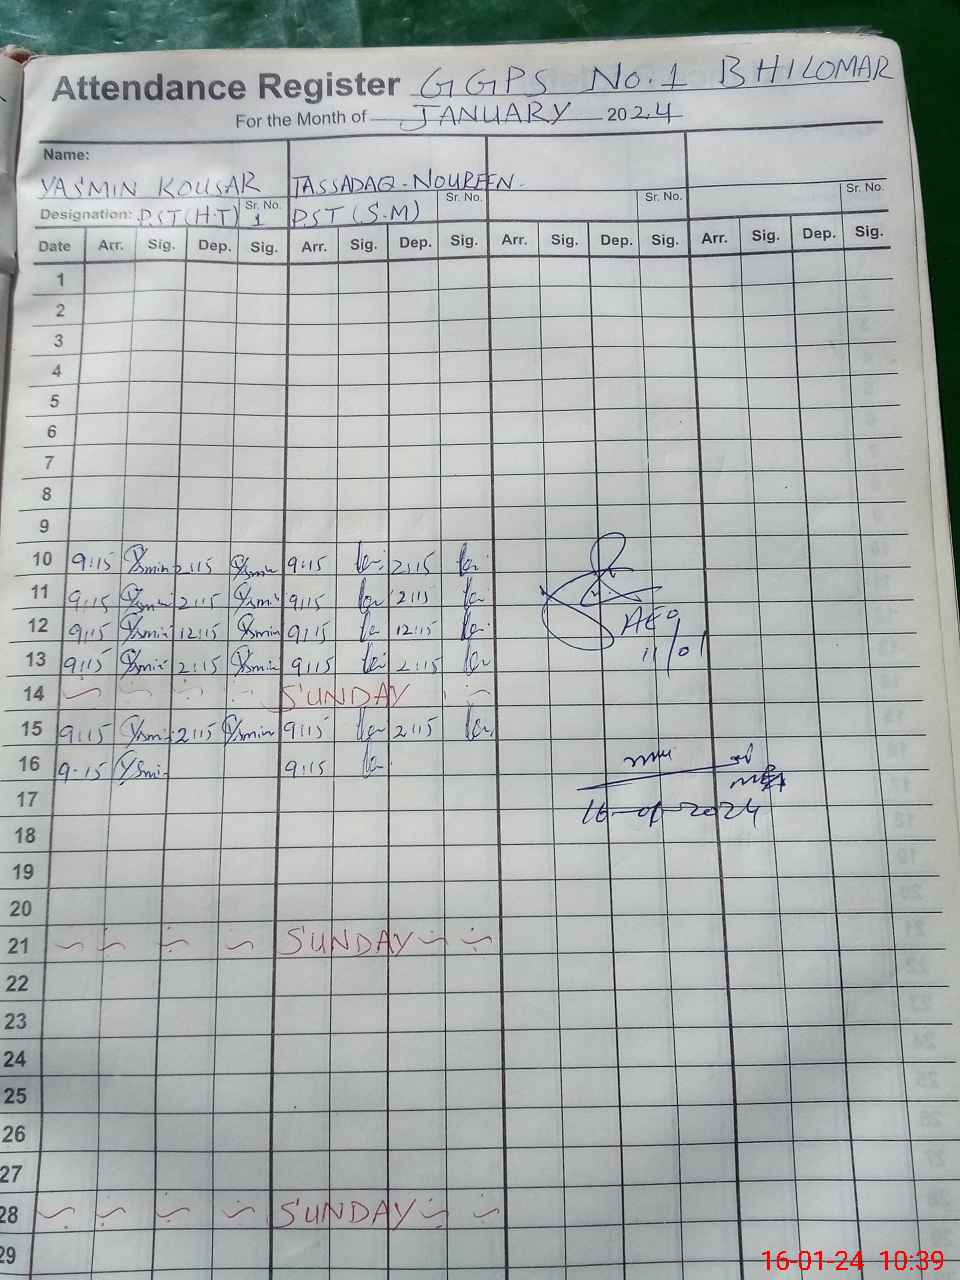 Attendance Register GGPS No.1 BHILOMAR
For the Month of JANUARY 2024
Name:
YASMIN KOUSAR TASSADAQ-NOUREEN.
Designation: P.S.T (H.T) Sr. No. 1 P.S.T (S.M) Sr. No. Sr. No. Sr. No.
Date Arr. Sig. Dep. Sig. Arr. Sig. Dep. Sig. Arr. Sig. Dep. Sig. Arr. Sig. Dep. Sig.
1
2
3
4
5
6
7
8
9
10 9:15 Ysmin 2:15 Ysmin 9:15 2:15
11 9:15 Ysmin 2:15 Ysmin 9:15 2:15
12 9:15 Ysmin 12:15 Ysmin 9:15 12:15 AEO
13 9:15 Ysmin 2:15 Ysmin 9:15 2:15 11/01
14 SUNDAY
15 9:15 Ysmin 2:15 Ysmin 9:15 2:15
16 9:15 Ysmin 9:15
17 16-01-2024
18
19
20
21 SUNDAY
22
23
24
25
26
27
28 SUNDAY
29
16-01-24 10:39